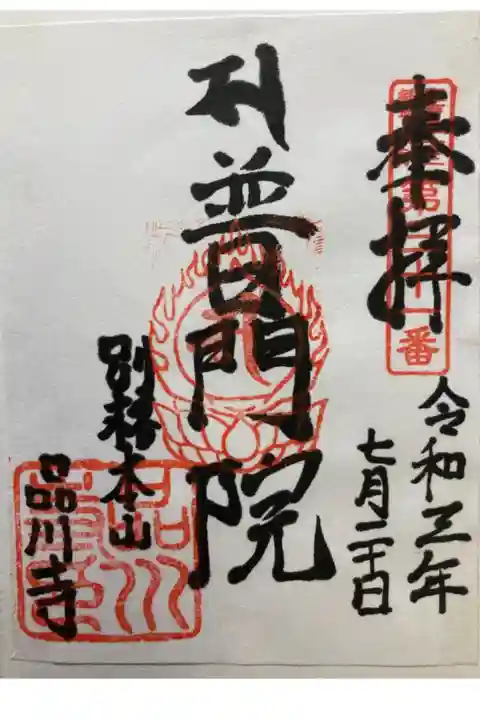 奉拝
令和三年
七月二十日
普門院
別格本山
品川寺
第
番